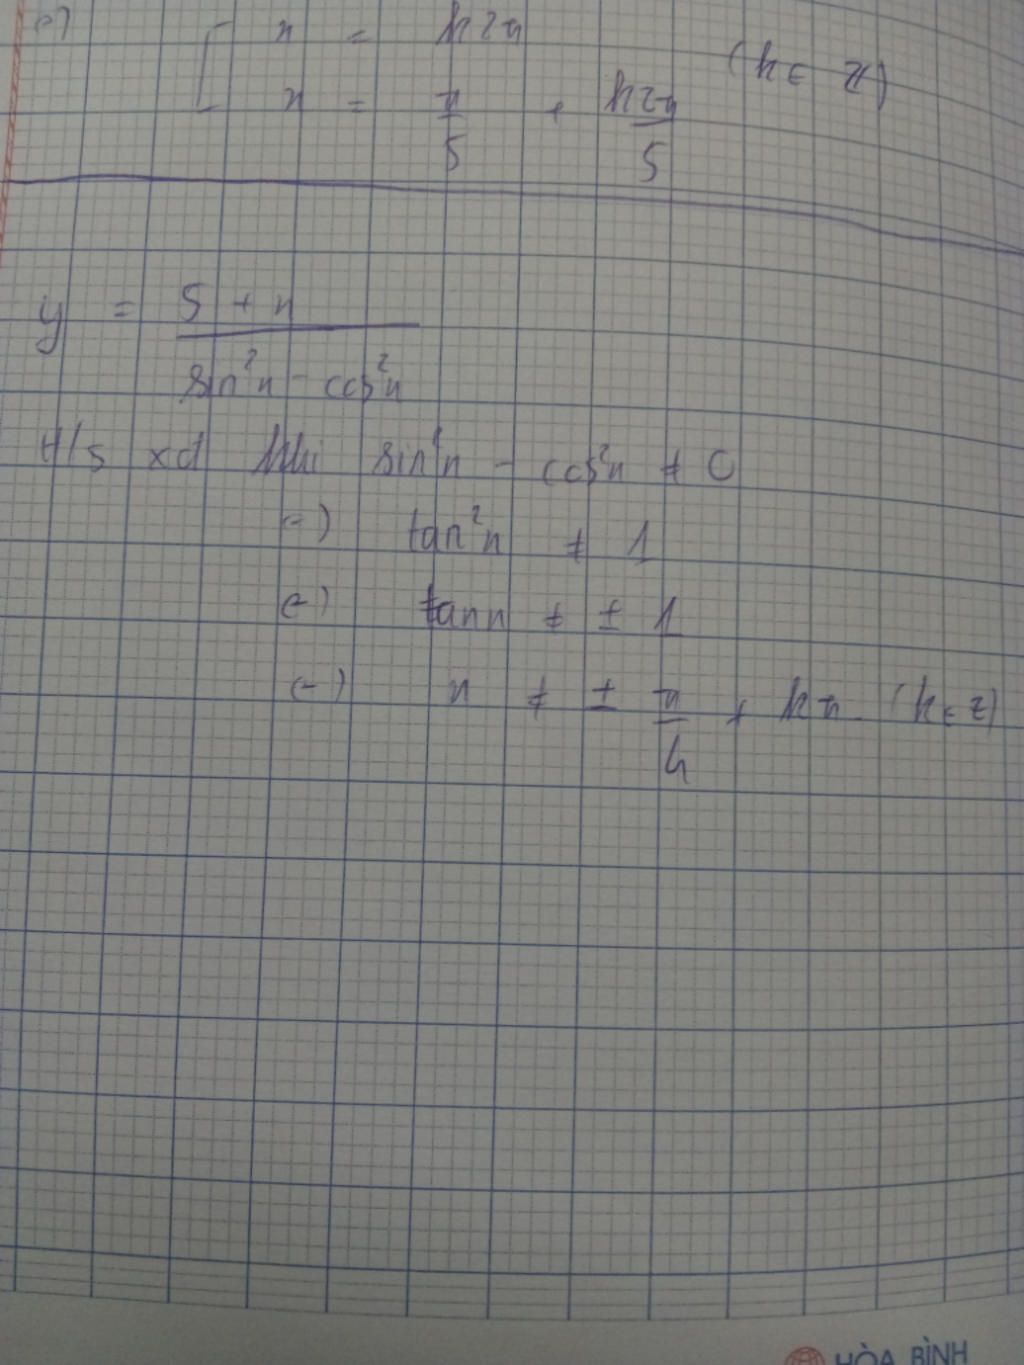 <=> [ x = k2π
x = π/5 + k2π/5 (k ∈ Z)
y = (5 + x)/(sin²x - cos²x)
H/s xđ khi sin²x - cos²x ≠ 0
<=> tan²x ≠ 1
<=> tanx ≠ ± 1
<=> x ≠ ± π/4 + kπ (k ∈ Z)
HÒA BÌNH